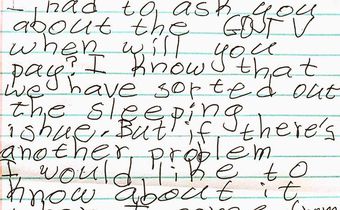 I had to ask you
about the GBTV
when will you
pay? I know that
we have sorted out
the sleeping
ishue. But if there's
another problem
I would like to
know about it